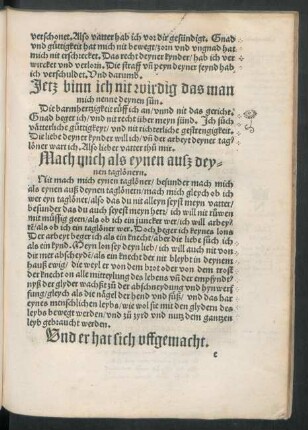 verschonet. Also vatter hab ich vor dir gesündigt. Gnad
vnd gütigkeit hat mich nit bewegt/zorn vnd vngnad hat
mich nit erschrecket. Das recht deyner kynder/hab ich ver
wircket vnd verlorn. Die straff vñ peyn deyner feynd hab
ich verschuldet. Vnd darumb.
Jetz binn ich nit wirdig das man
mich nenne deynen sün.
Die barmhertzigkeit rüff ich an/vnnd nit das gericht.
Gnad beger ich/vnd nit recht über meyn sünd. Ich süch
vätterliche gütigkeyt/vnd nit richterliche gestrengigkeit.
Die liebe deyner kynder will ich/vñ der arbeyt deyner tag
löner wart ich. Also lieber vatter thů mir.
Mach mich als eynen ausz dey-
nen taglönern.
Nit mach mich eynen taglöner/besunder mach mich
als eynen ausz deynen taglönern/mach mich gleych ob ich
wer eyn taglöner/also das du nit alleyn seyst meyn vatter/
besunder das du auch seyest meyn herr/ich will nit rüwen
mit müssig geen/als ob ich ein juncker wer/ich will arbey
tẽ/als ob ich ein taglöner wer. Doch beger ich keynes lons
Der arbeyt beger ich als ein knecht/aber die liebe süch ich
als ein kynd. Meyn lon sey deyn lieb/ich will auch nit von
dir mer abscheydẽ/als ein knecht der nit bleybt in deynem
hausz ewig/die weyl er von dem trost oder von dem trost
der knecht on alle mitteylung des lebens vñ der empfynd/
nysz der glyder wachszt zů der abschneydung vnd hynwerf
fung/gleych als die nägel der hend vnd füsz/vnd das har
eynes menschlichen leybs/wie wol sie mit den glydern des
leybs bewegt werden/vnd zů zyrd vnd nutz dem gantzen
leyb gebraucht werden.
Vnd er hat sich vffgemacht.
c